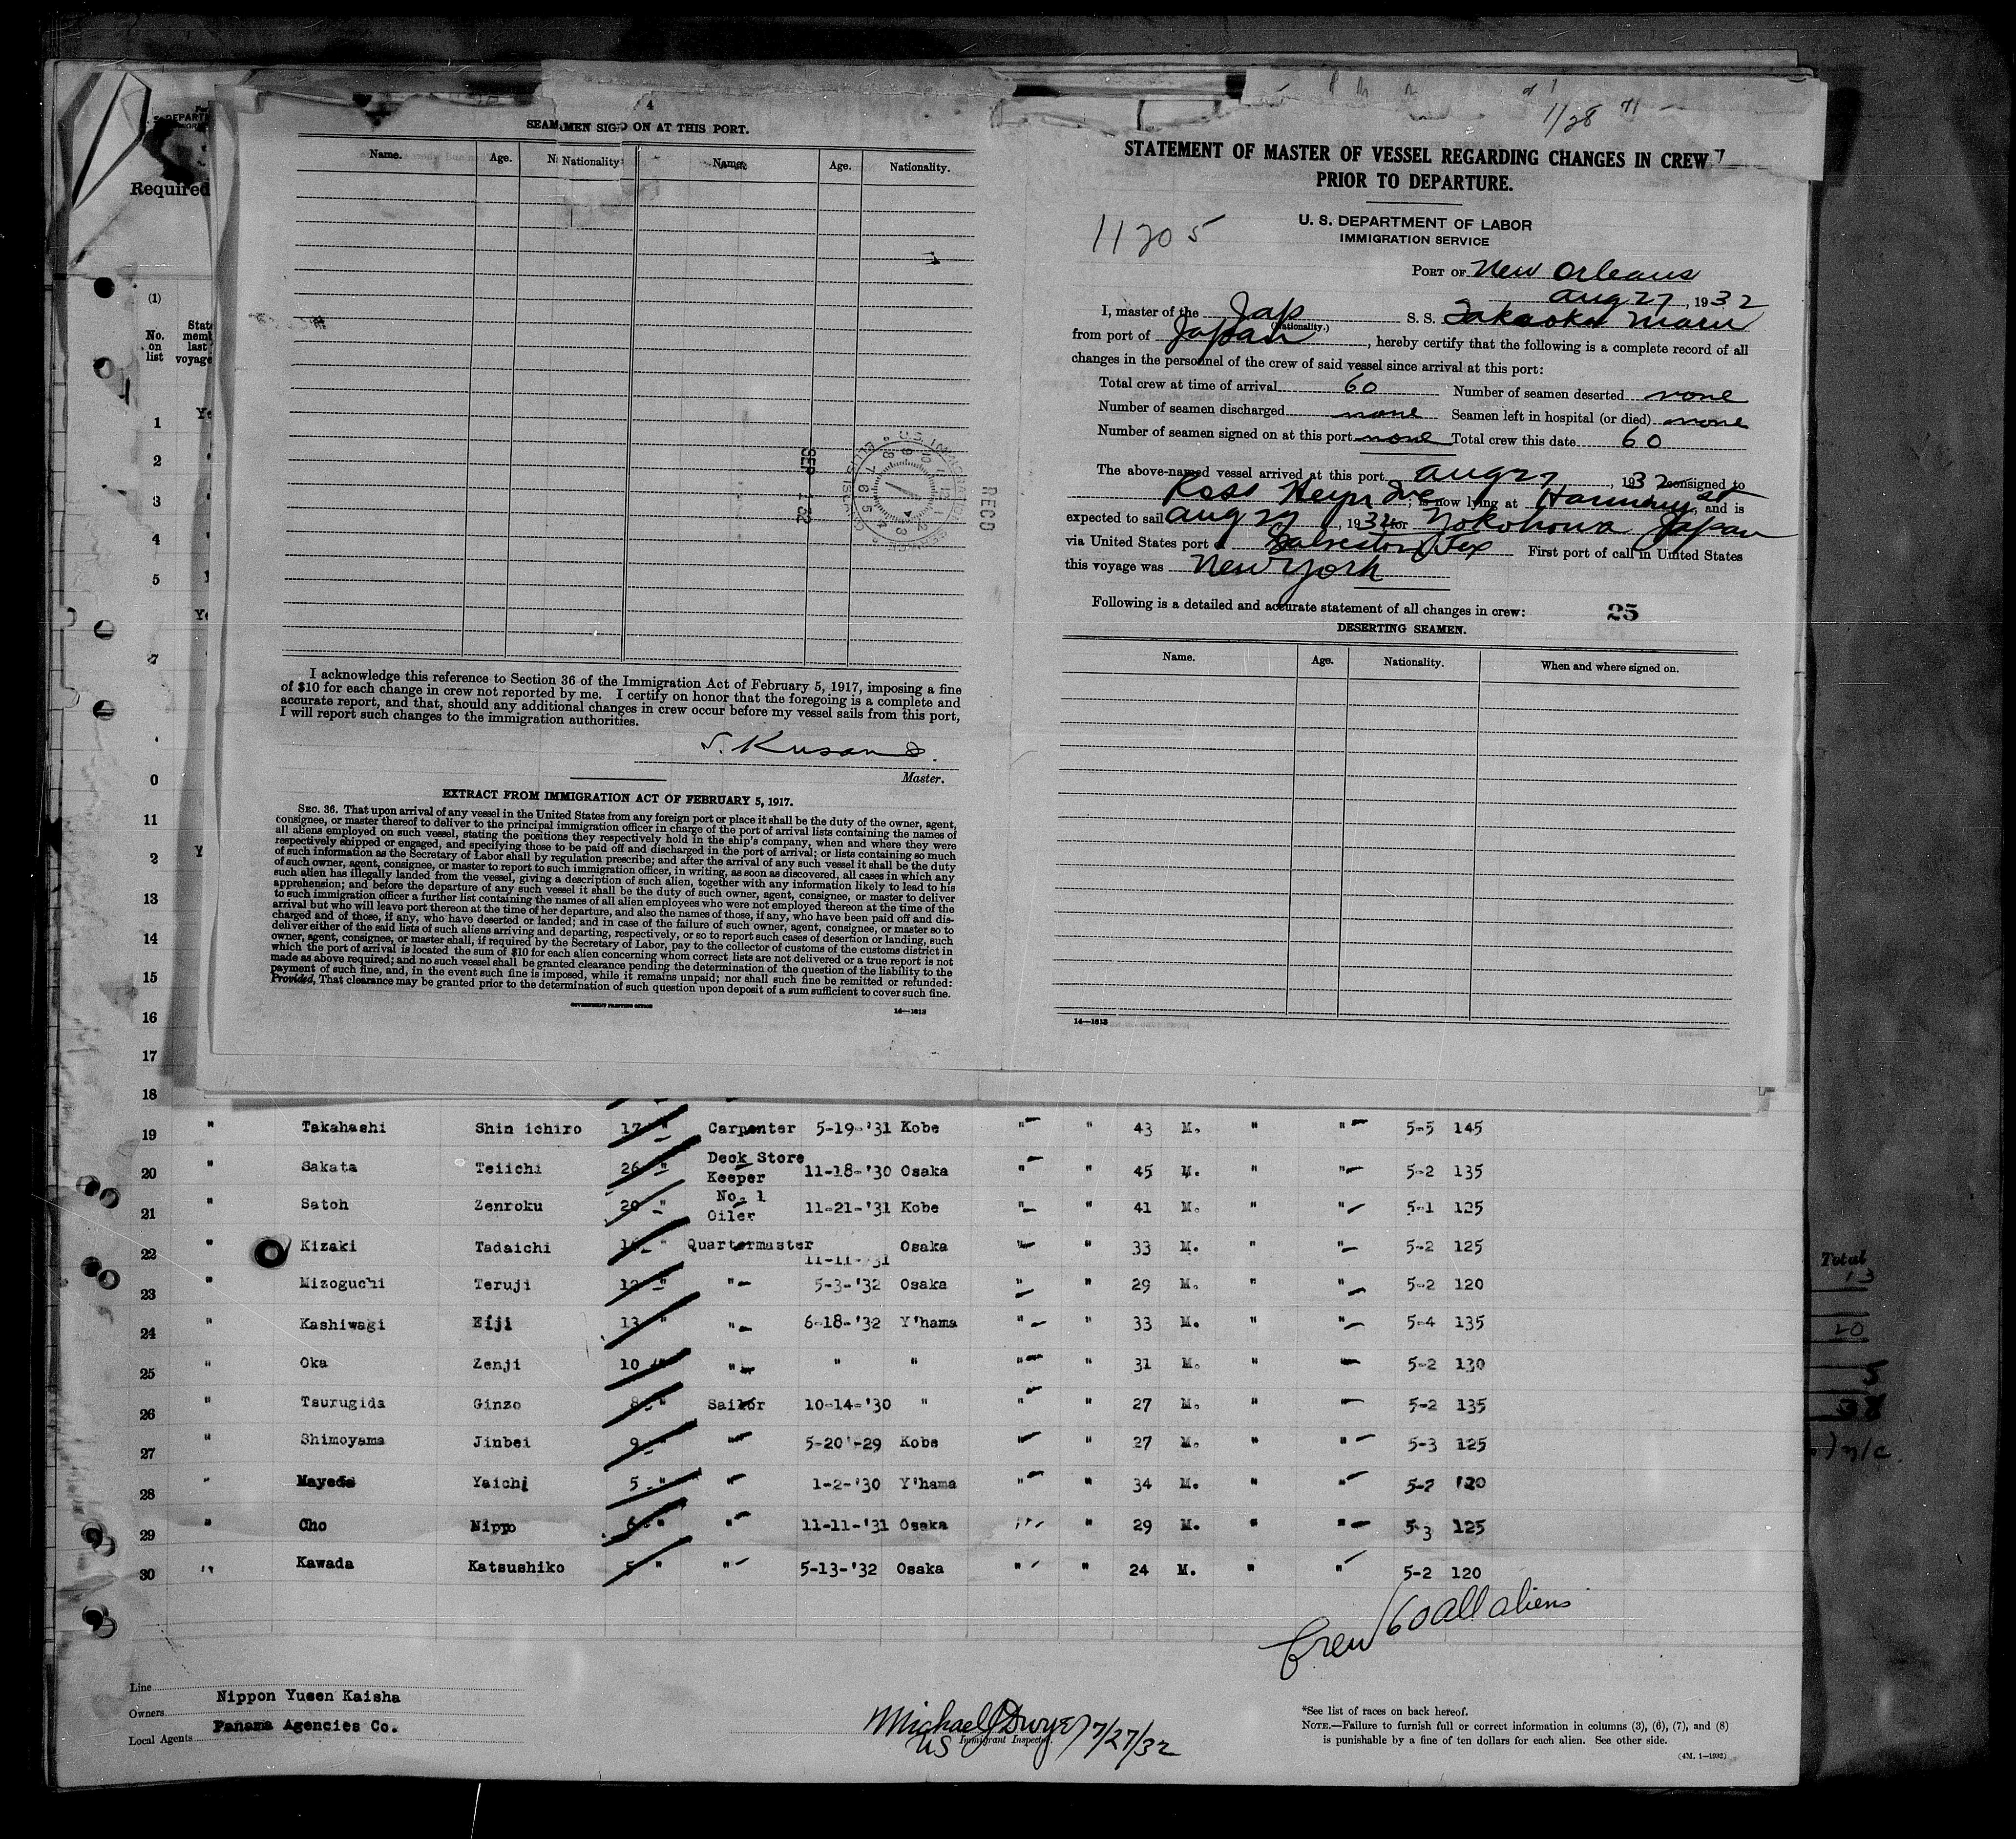 4
SEAMEN SIGN ON AT THIS PORT.
Name. Age. Nationality Name. Age. Nationality.
RECD
SEP 1 '32
I acknowledge this reference to Section 36 of the Immigration Act of February 5, 1917, imposing a fine
of $10 for each change in crew not reported by me. I certify on honor that the foregoing is a complete and
accurate report, and that, should any additional changes in crew occur before my vessel sails from this port,
I will report such changes to the immigration authorities.
Master.
EXTRACT FROM IMMIGRATION ACT OF FEBRUARY 5, 1917.
SEC. 36. That upon arrival of any vessel in the United States from any foreign port or place it shall be the duty of the owner, agent,
consignee, or master thereof to deliver to the principal immigration officer in charge of the port of arrival lists containing the names of
all aliens employed on such vessel, stating the positions they respectively hold in the ship's company, when and where they were
respectively shipped or engaged, and specifying those to be paid off and discharged in the port of arrival; or lists containing so much
of such information as the Secretary of Labor shall by regulation prescribe; and after the arrival of any such vessel it shall be the duty
of such owner, agent, consignee, or master to report to such immigration officer, in writing, as soon as discovered, all cases in which any
such alien has illegally landed from the vessel, giving a description of such alien, together with any information likely to lead to his
apprehension; and before the departure of any such vessel it shall be the duty of such owner, agent, consignee, or master to deliver
to such immigration officer a further list containing the names of all alien employees who were not employed thereon at the time of the
arrival but who will leave port thereon at the time of her departure, and also the names of those, if any, who have been paid off and dis-
charged and of those, if any, who have deserted or landed; and in case of the failure of such owner, agent, consignee, or master so to
deliver either of the said lists of such aliens arriving and departing, respectively, or so to report such cases of desertion or landing, such
owner, agent, consignee, or master shall, if required by the Secretary of Labor, pay to the collector of customs of the customs district in
which the port of arrival is located the sum of $10 for each alien concerning whom correct lists are not delivered or a true report is not
made as above required; and no such vessel shall be granted clearance pending the determination of the question of the liability to the
payment of such fine, and, in the event such fine is imposed, while it remains unpaid; nor shall such fine be remitted or refunded:
Provided, That clearance may be granted prior to the determination of such question upon deposit of a sum sufficient to cover such fine.
GOVERNMENT PRINTING OFFICE 14—1613
11/28
STATEMENT OF MASTER OF VESSEL REGARDING CHANGES IN CREW
PRIOR TO DEPARTURE.
U. S. DEPARTMENT OF LABOR
IMMIGRATION SERVICE
11205
PORT OF New Orleans
Aug 27, 1932
I, master of the Jap (Nationality.) S. S. Takaoka Maru
from port of Japan, hereby certify that the following is a complete record of all
changes in the personnel of the crew of said vessel since arrival at this port:
Total crew at time of arrival 60 Number of seamen deserted none
Number of seamen discharged none Seamen left in hospital (or died) none
Number of seamen signed on at this port none Total crew this date 60
The above-named vessel arrived at this port Aug 27, 1932 consigned to
Ross Heyn Inc; is now lying at Harmony st, and is
expected to sail Aug 27, 1932 for Yokohoma Japan
via United States port Galveston Tex First port of call in United States
this voyage was New York
Following is a detailed and accurate statement of all changes in crew: 25
DESERTING SEAMEN.
Name. Age. Nationality. When and where signed on.
14—1613
Required
(1)
No. on list
1
2
3
4
5
7
0
11
2
13
14
15
16
17
18
19 " Takahashi Shin ichiro 17 " Carpenter 5-19-'31 Kobe " " 43 M. " " 5-5 145
20 " Sakata Teiichi 26 " Deck Store Keeper 11-18-'30 Osaka " " 45 M. " " 5-2 135
21 " Satoh Zenroku 20 " No. 1 Oiler 11-21-'31 Kobe " " 41 M. " " 5-1 125
22 " Kizaki Tadaichi " Quartermaster 11-11-'31 Osaka " " 33 M. " " 5-2 125
23 " Mizoguchi Teruji 12 " " 5-3-'32 Osaka " " 29 M. " " 5-2 120
24 " Kashiwagi Eiji 13 " " 6-18-'32 Y'hama " " 33 M. " " 5-4 135
25 " Oka Zenji 10 " " " " " " 31 M. " " 5-2 130
26 " Tsurugida Ginzo 8 " Sailor 10-14-'30 " " " 27 M. " 5-2 135
27 " Shimoyama Jinbei 9 " " 5-20'-29 Kobe " " 27 M. " " 5-3 125
28 " Mayeda Yaichi 5 " " 1-2-'30 Y'hama " " 34 M. " " 5-2 120
29 " Cho Nippo 6 " " 11-11-'31 Osaka " " 29 M. " " 5-3 125
30 " Kawada Katsushiko 5 " " 5-13-'32 Osaka " " 24 M. " " 5-2 120
Crew 60 all aliens
Total
13
20
5
38
Line Nippon Yusen Kaisha
Owners
Local Agents Panama Agencies Co.
Michael J Dwyer 7/27/32
US Immigrant Inspector.
*See list of races on back hereof.
NOTE.—Failure to furnish full or correct information in columns (3), (6), (7), and (8)
is punishable by a fine of ten dollars for each alien. See other side.
(4M. 1—1932)